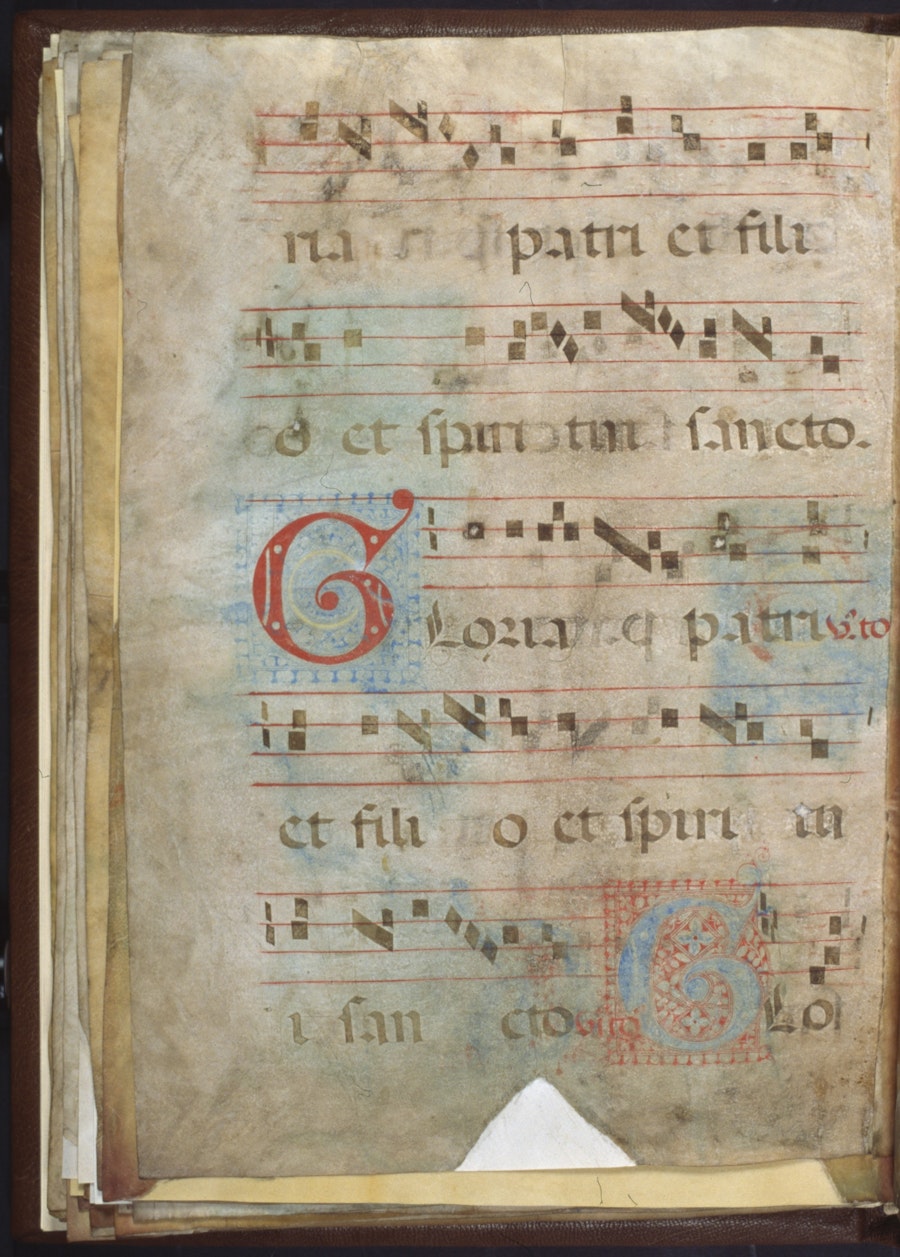 ria patri et fili
o et spiri tui sancto.
GLORIA patri
et fili o et spiri tu
i san cto GLO